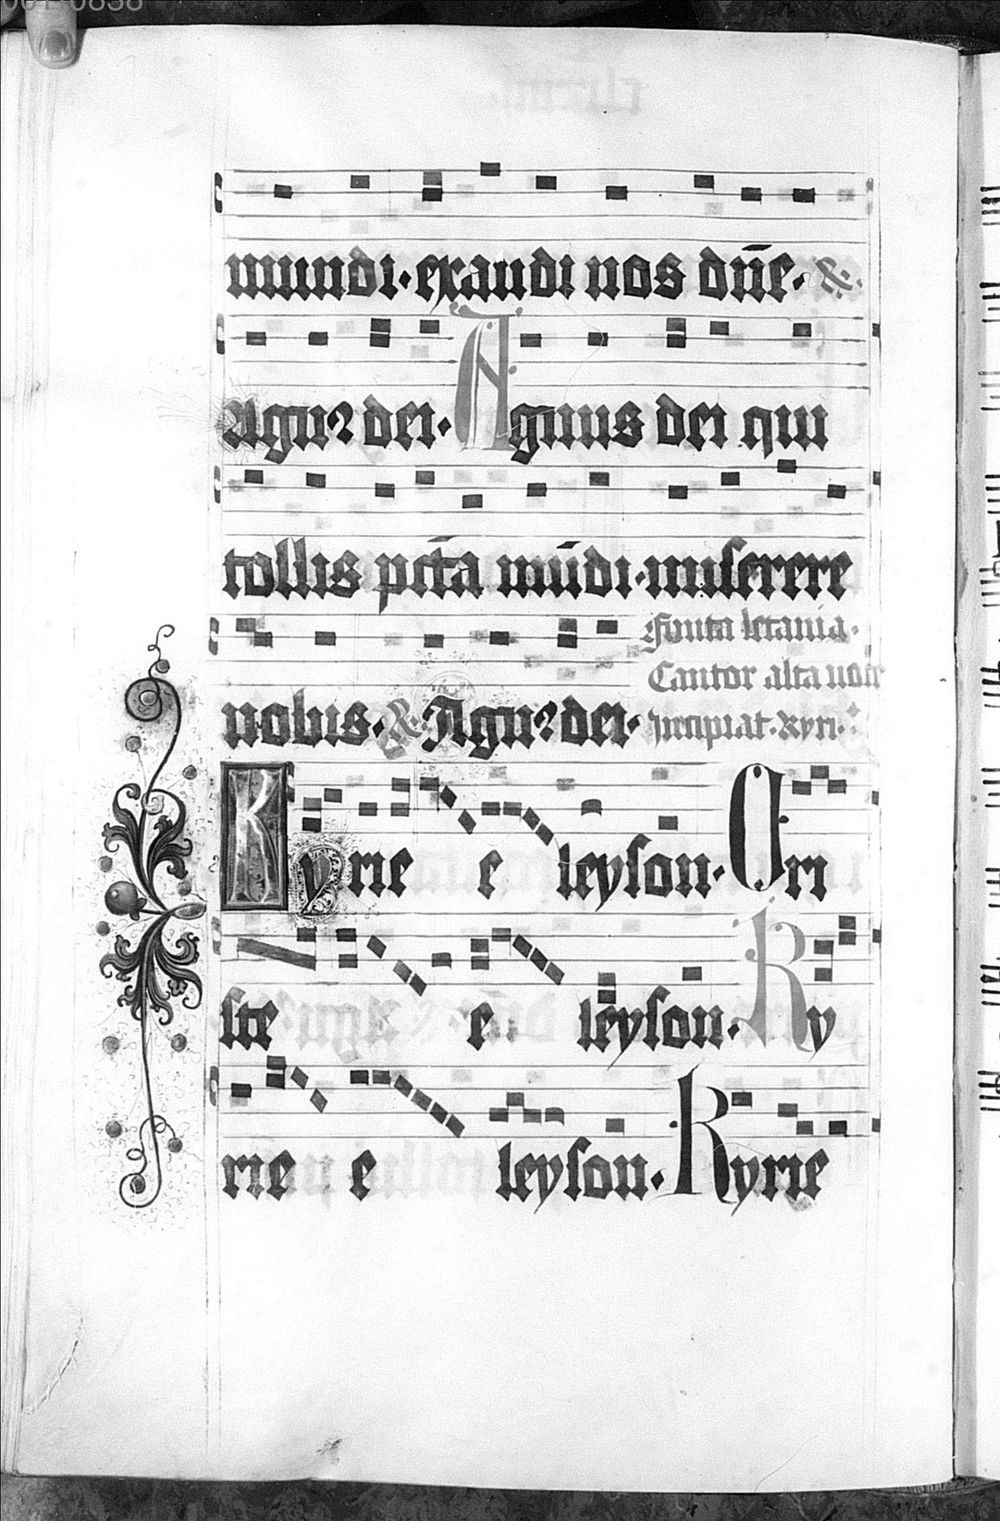 mundi. exaudi nos dn̄e. R.
Agnꝰ dei. Agnus dei qui
tollis pctā mūdi. miserere
finita letania.
Cantor alta uoce
nobis. R. Agnꝰ dei. incipiat. kyri.
Kyrie e leyson. Cri
ste e leyson. Ky
rie e leyson. Kyrie